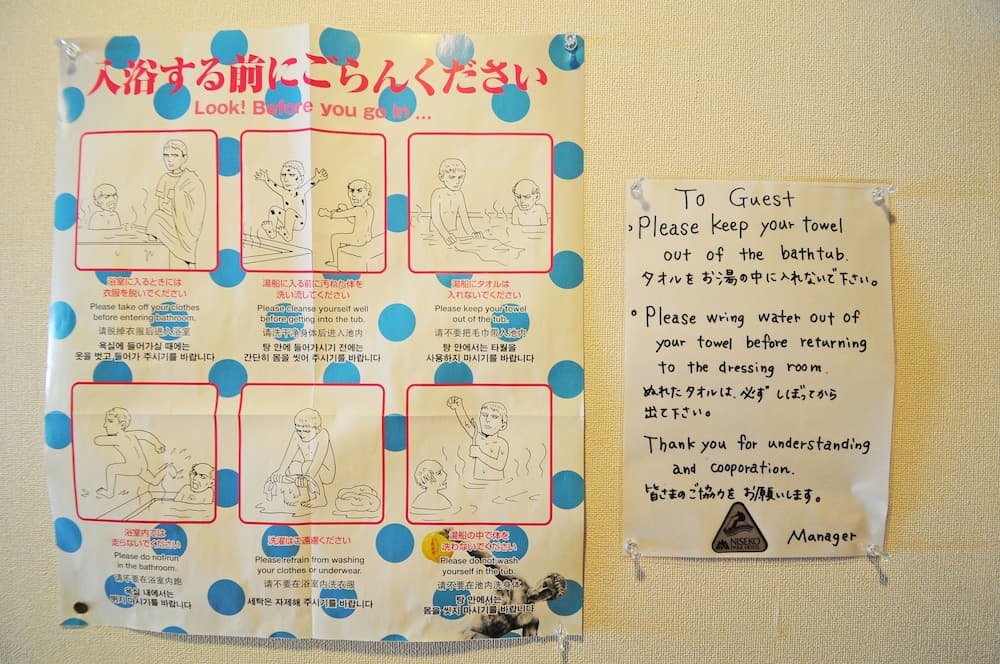 入浴する前にごらんください
Look! Before you go in ...
浴室に入るときには
衣服を脱いでください
Please take off your clothes
before entering bathroom.
请脱掉衣服后进入浴室
욕실에 들어가실 때에는
옷을 벗고 들어가 주시기를 바랍니다
湯船に入る前に汚れた体を
洗い流してください
Please cleanse yourself well
before getting into the tub.
请洗干净身体后进入池内
탕 안에 들어가시기 전에는
간단히 몸을 씻어 주시기를 바랍니다
湯船にタオルは
入れないでください
Please keep your towel
out of the tub.
请不要把毛巾带入池内
탕 안에서는 타월을
사용하지 마시기를 바랍니다
浴室内では
走らないでください
Please do not run
in the bathroom.
请不要在浴室内跑
욕실 내에서는
뛰지 마시기를 바랍니다
洗濯はご遠慮ください
Please refrain from washing
your clothes or underwear.
请不要在浴室内洗衣服
세탁은 자제해 주시기를 바랍니다
湯船の中で体を
洗わないでください
Please do not wash
yourself in the tub.
请不要在池内洗身体
탕 안에서는
몸을 씻지 마시기를 바랍니다
To Guest
Please keep your towel
out of the bathtub.
タオルをお湯の中に入れないで下さい。
Please wring water out of
your towel before returning
to the dressing room.
ぬれたタオルは、必ず しぼってから
出て下さい。
Thank you for understanding
and cooporation.
皆さまのご協力を お願いします。
NISEKO
Manager